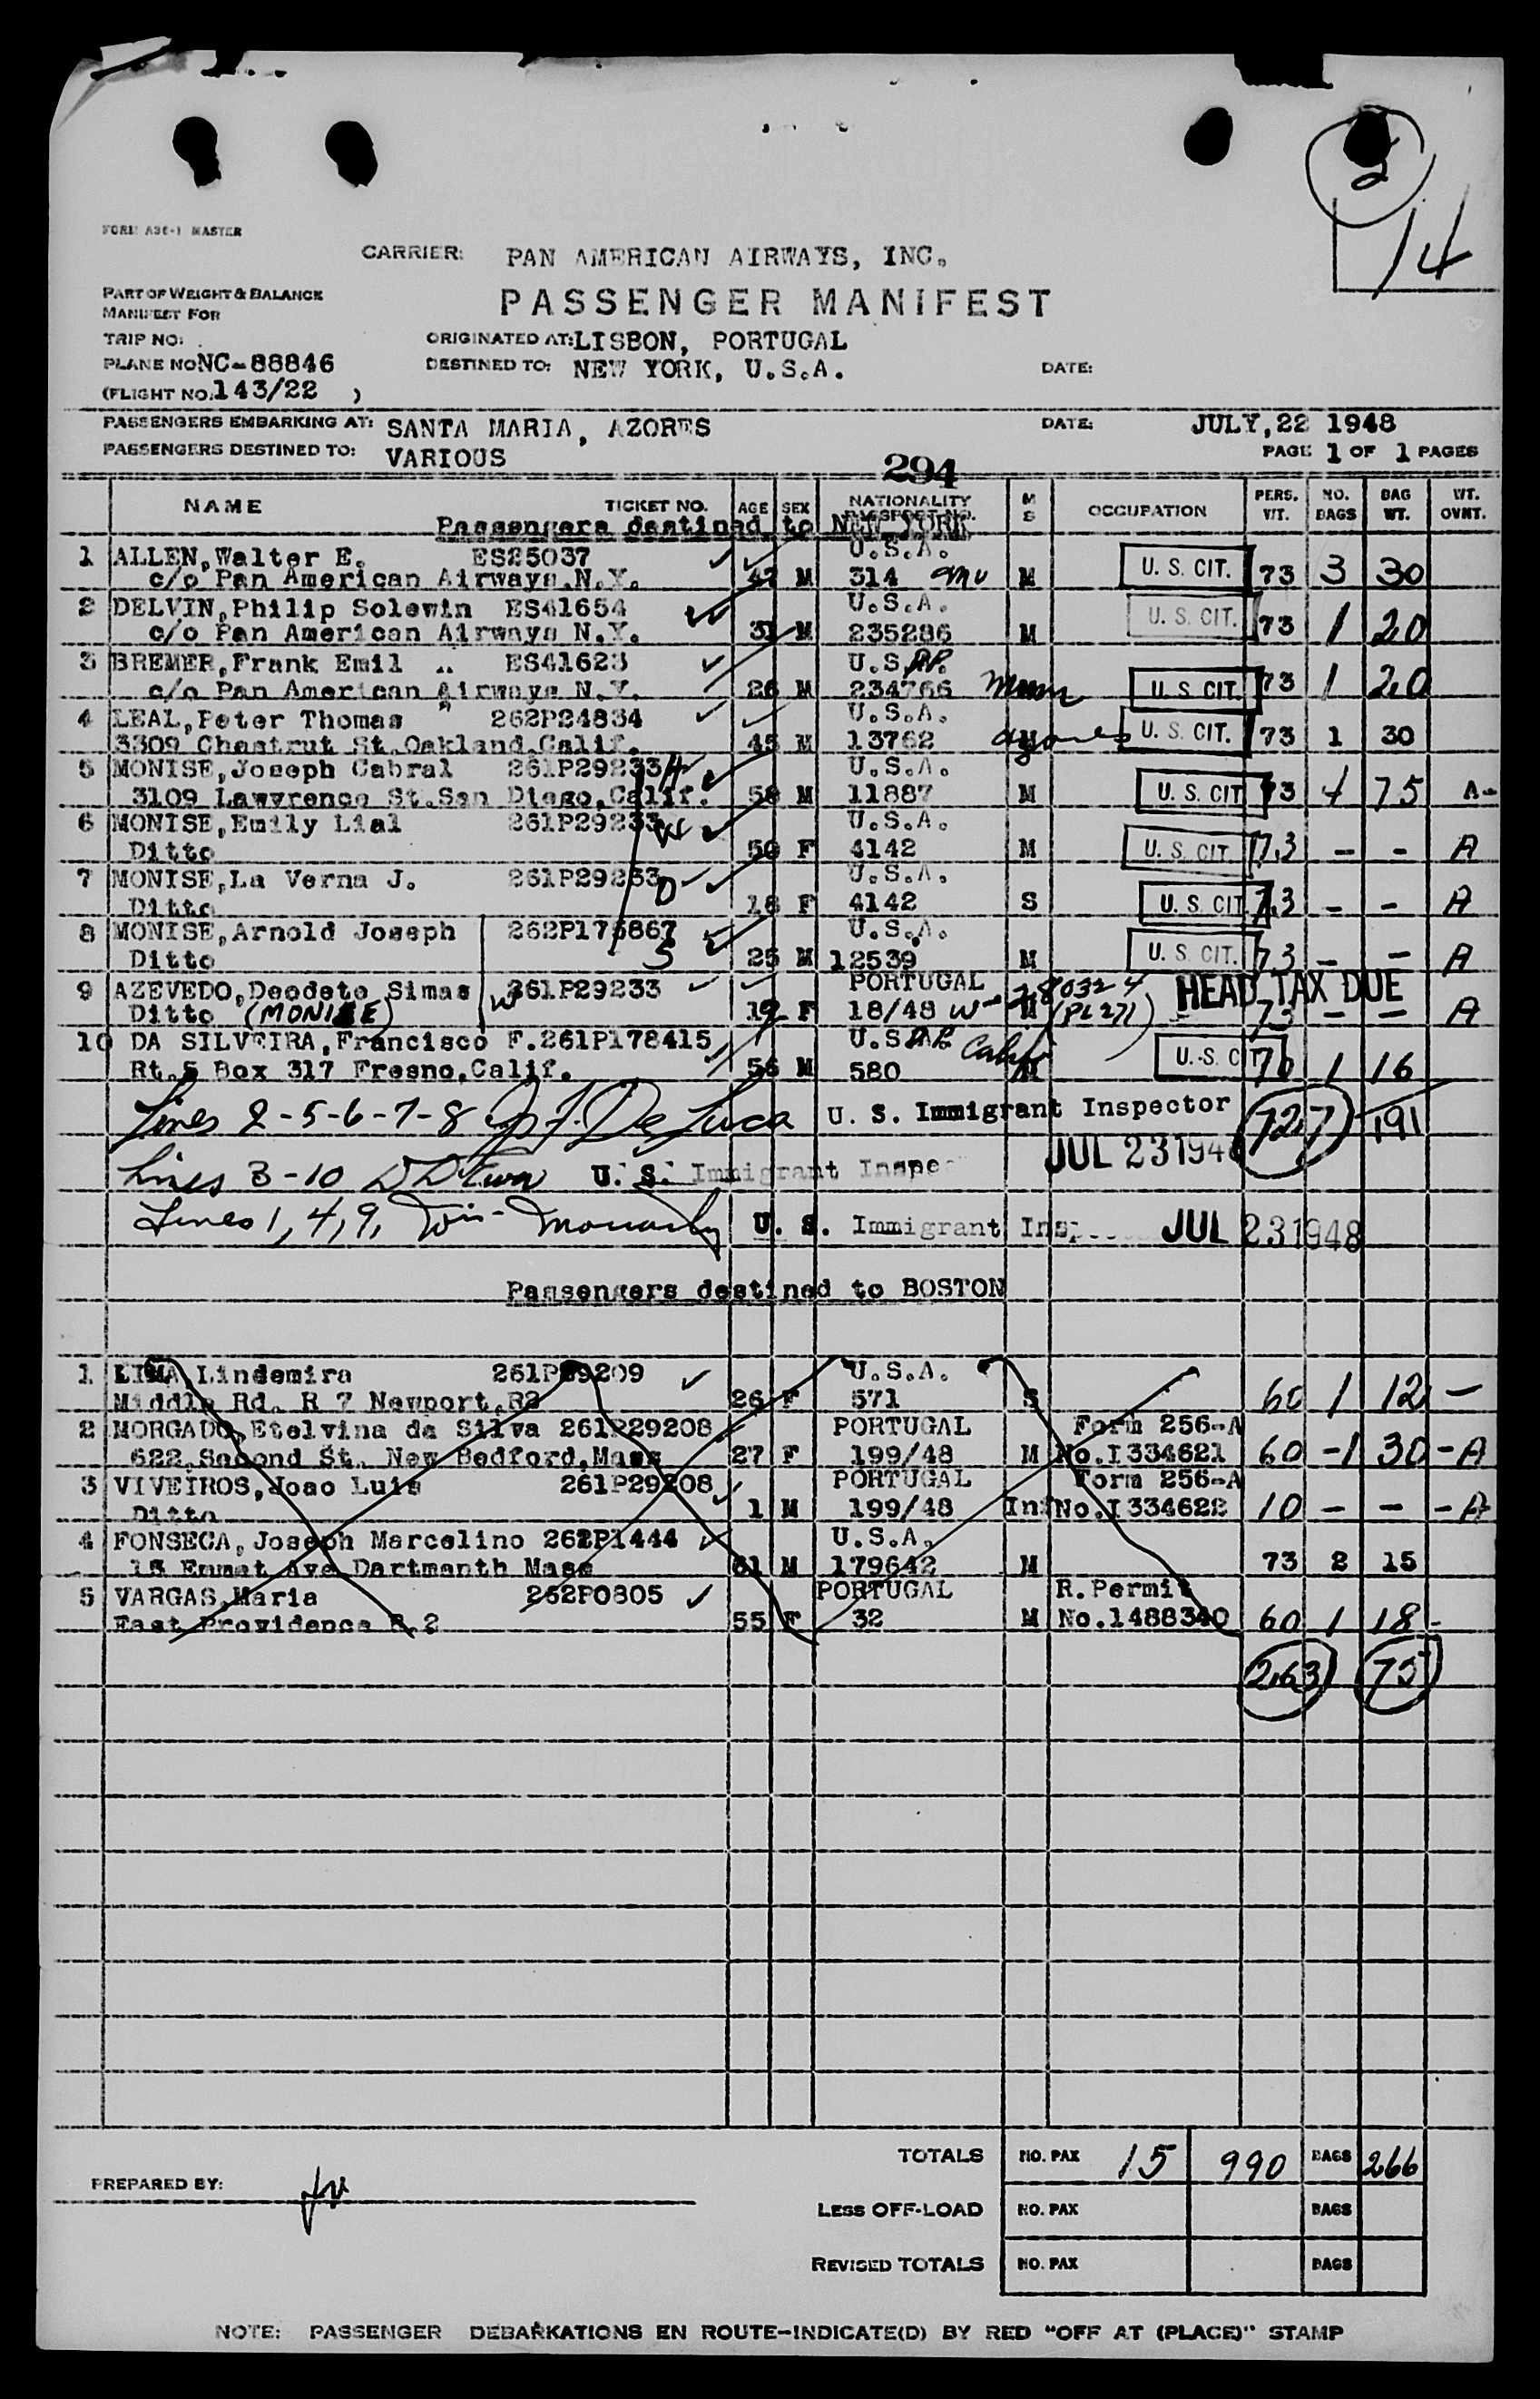 2
14
FORM A36-1 MASTER
CARRIER: PAN AMERICAN AIRWAYS, INC.
PART OF WEIGHT & BALANCE
MANIFEST FOR
PASSENGER MANIFEST
TRIP NO:
ORIGINATED AT: LISBON, PORTUGAL
PLANE NO NC-88846
DESTINED TO: NEW YORK, U.S.A.
DATE:
(FLIGHT NO. 143/22 )
PASSENGERS EMBARKING AT: SANTA MARIA, AZORES
DATE: JULY, 22 1948
PASSENGERS DESTINED TO: VARIOUS
PAGE 1 OF 1 PAGES
294
NAME TICKET NO. AGE SEX NATIONALITY PASSPORT NO. M S OCCUPATION PERS. WT. NO. BAGS BAG WT. WT. OVNT.
Passengers destined to NEW YORK
1 ALLEN, Walter E. ES25037 U.S.A. U. S. CIT. 73 3 30
c/o Pan American Airways, N.Y. 42 M 314 M
2 DELVIN, Philip Solewin ES41654 U.S.A. U. S. CIT. 73 1 20
c/o Pan American Airways N.Y. 31 M 235286 M
3 BREMER, Frank Emil .. ES41623 U.S.A. U. S. CIT. 73 1 20
c/o Pan American Airways N.Y. 26 M 234766
4 LEAL, Peter Thomas " 262P24834 U.S.A. U. S. CIT. 73 1 30
3309 Chestrut St. Oakland, Calif. 45 M 13762 Azores
5 MONISE, Joseph Cabral 261P29233 H U.S.A. U. S. CIT 73 4 75 A-
3109 Lawvrence St. San Diego, Calif. 58 M 11887 M
6 MONISE, Emily Lial 261P29233 W U.S.A. U. S. CIT. 73 - - A
Ditto 50 F 4142 M
7 MONISE, La Verna J. 261P29233 D U.S.A. U. S. CIT. 73 - - A
Ditto 18 F 4142 S
8 MONISE, Arnold Joseph 262P175867 U.S.A. U. S. CIT. 73 - - A
Ditto S 25 M 12539 M
9 AZEVEDO, Deodeto Simas W 261P29233 PORTUGAL HEAD TAX DUE
Ditto (MONISE) 19 F 18/48 W- (PL 271) 73 - - A
10 DA SILVEIRA, Francisco F. 261P178415 U.S.A. Calif U. S. CIT
Rt. 5 Box 317 Fresno, Calif. 56 M 580 M 70 1 16
Lines 2-5-6-7-8 J. De Luca U. S. Immigrant Inspector 727 191
JUL 23 1948
Lines 3-10 U. S. Immigrant Inspe
Lines 1, 4, 9, U. S. Immigrant Insp JUL 23 1948
Passengers destined to BOSTON
1 LIMA, Lindemira 261P29209 U.S.A.
Middle Rd. R 7 Newport, R2 26 F 571 S 60 1 12 -
2 MORGADO, Etelvina da Silva 261P29208 PORTUGAL Form 256-A
622, Second St. New Bedford, Mass 27 F 199/48 M No. I 334621 60 -1 30 -A
3 VIVEIROS, Joao Luis 261P29208 PORTUGAL Form 256-A
Ditto 1 M 199/48 Inf No. I 334622 10 - - -A
4 FONSECA, Joseph Marcelino 262P1444 U.S.A.
15 Emmet Ave Dartmanth Mass 61 M 179642 M 73 2 15
5 VARGAS, Maria 262P0805 PORTUGAL R. Permit
East Providence R.2 55 F 32 M No. 1488340 60 1 18 -
263 75
TOTALS NO. PAX 15 990 BAGS 266
PREPARED BY:
LESS OFF-LOAD NO. PAX BAGS
REVISED TOTALS NO. PAX BAGS
NOTE: PASSENGER DEBARKATIONS EN ROUTE-INDICATE(D) BY RED "OFF AT (PLACE)" STAMP